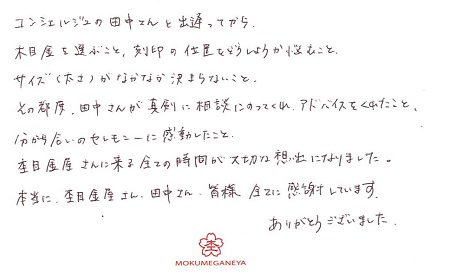 コンシェルジュの田中さんと出逢ってから、
木目金を選ぶこと、刻印の位置をどうしようか悩むこと、
サイズ(太さ)がなかなか決まらないこと、
その都度、田中さんが真剣に相談にのってくれ、アドバイスをくれたこと、
分かち合いのセレモニーに感動したこと、
杢目金屋さんに来る全ての時間が大切な想い出になりました。
本当に、杢目金屋さん、田中さん、皆様 全てに感謝しています。
ありがとうございました。
杢
MOKUMEGANEYA